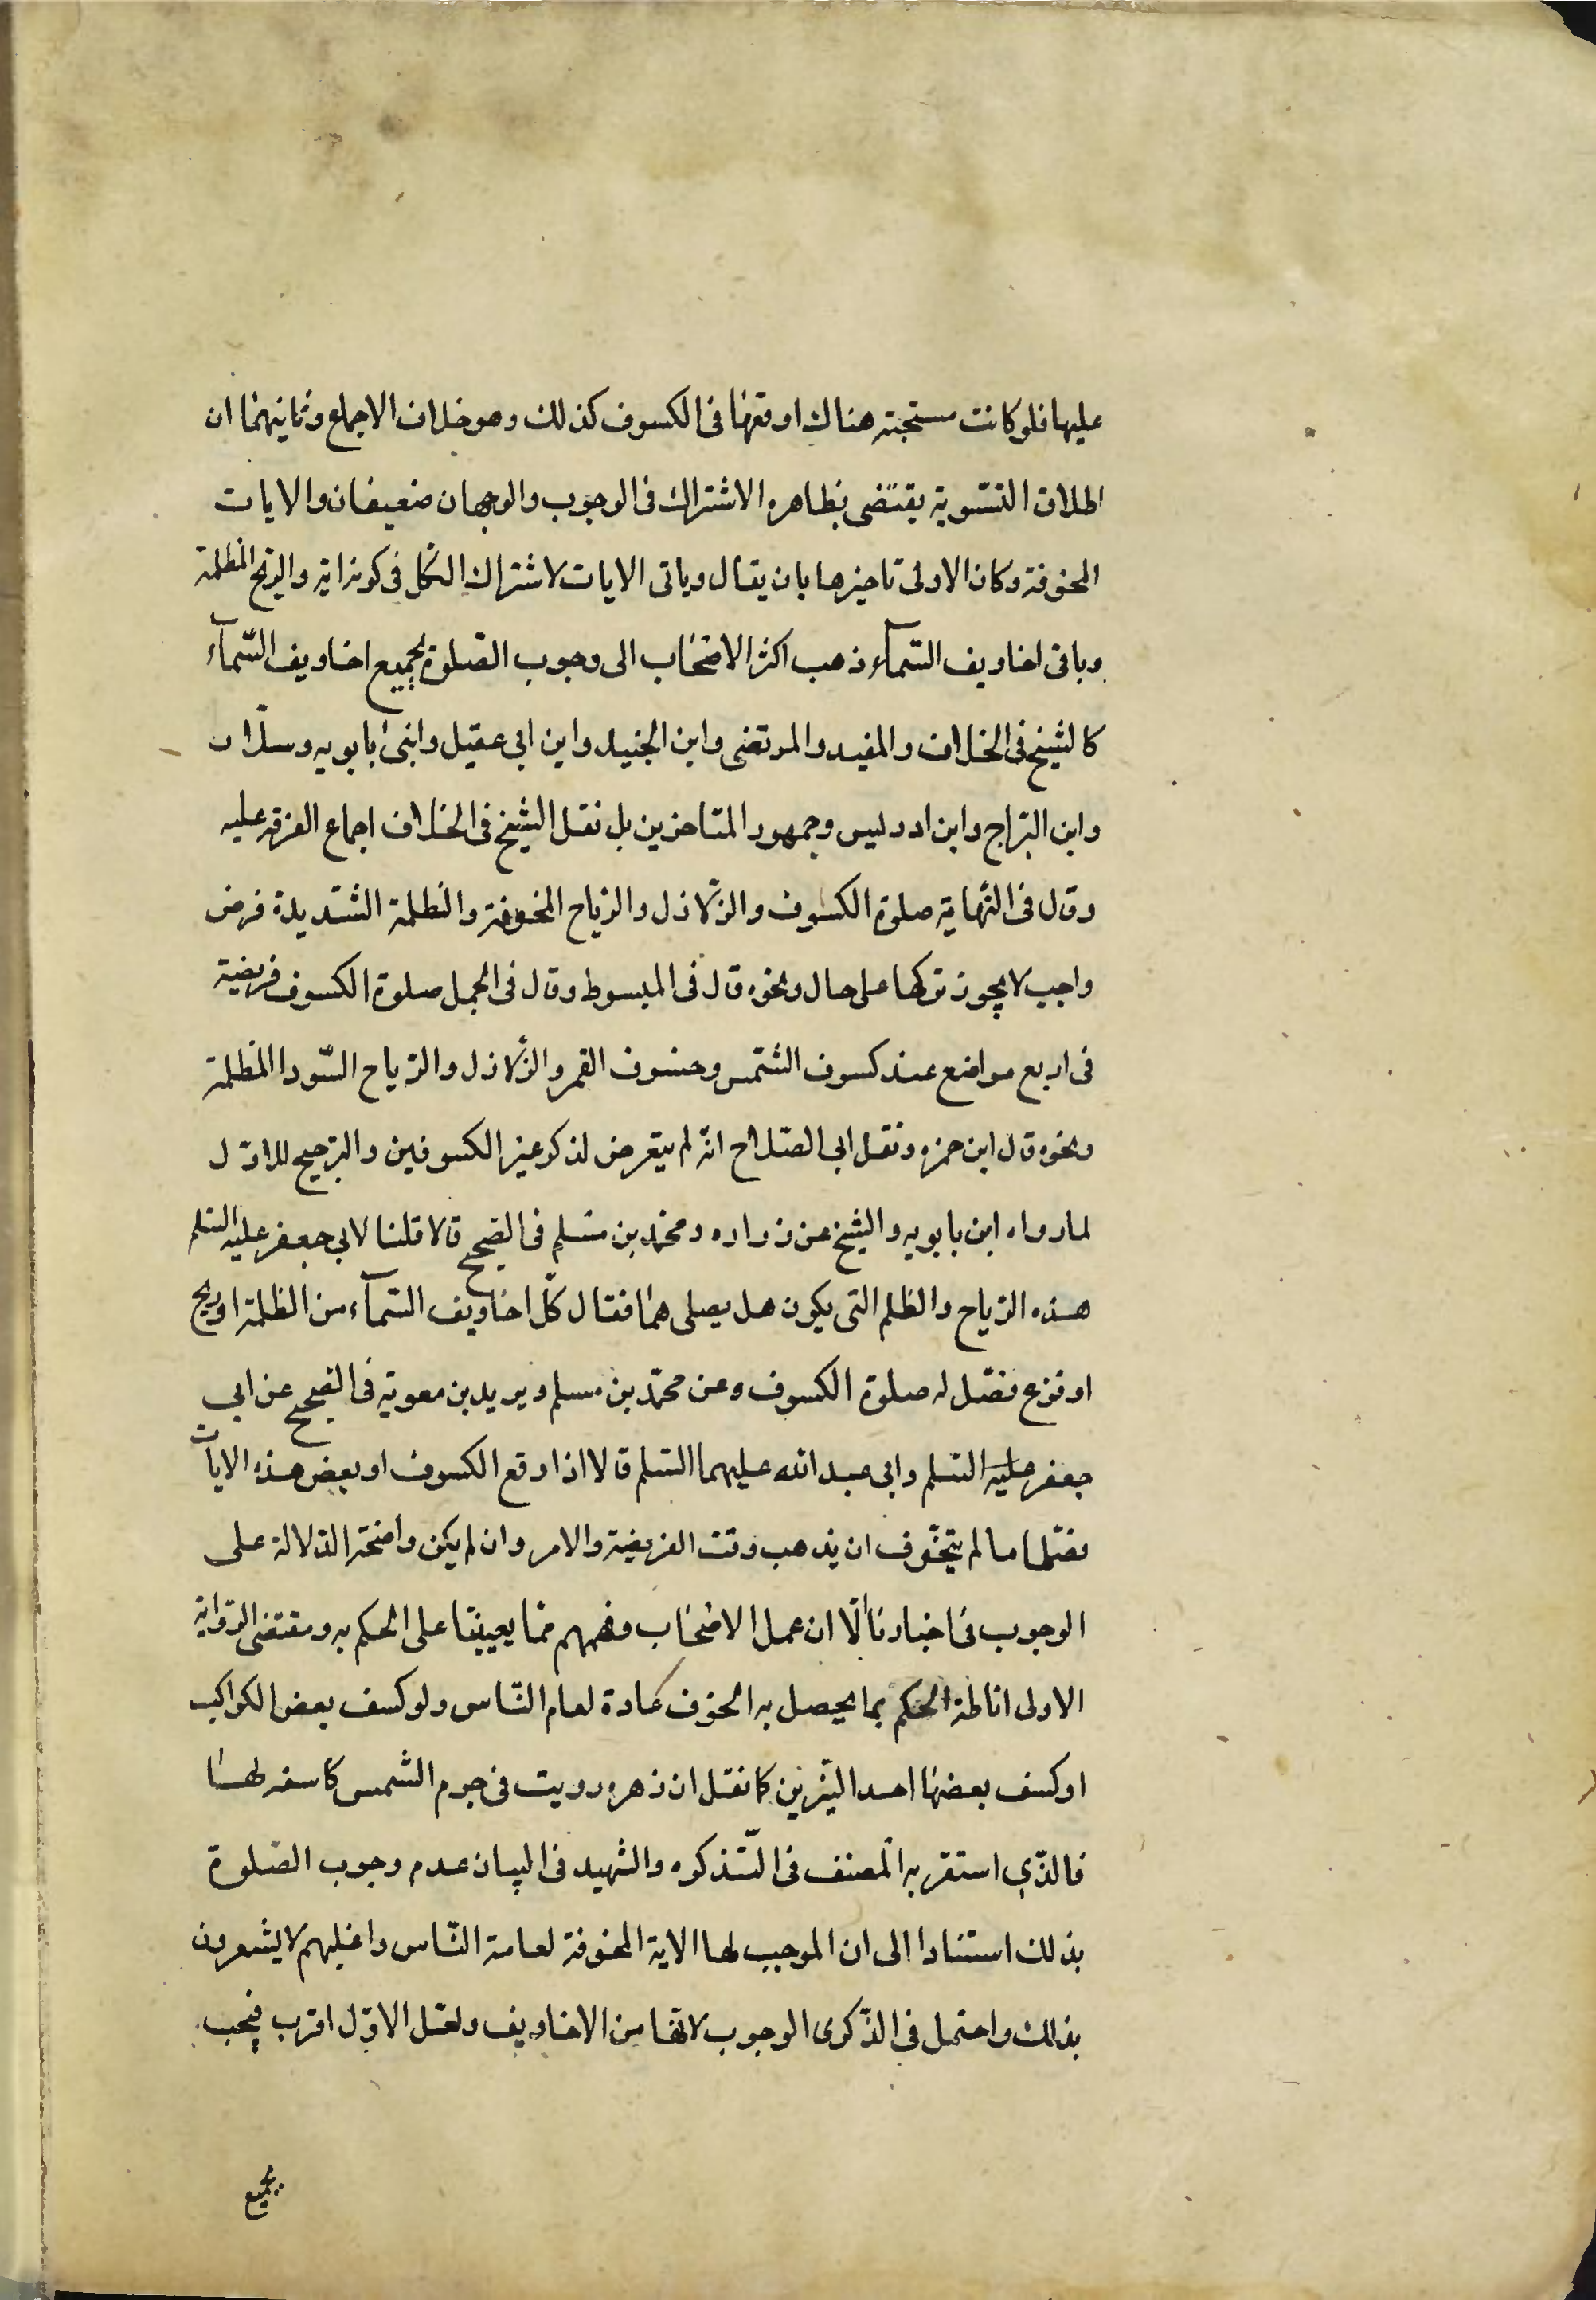 عليها فلو كانت مستحبته هناك اوقعها فى الكسوف كذلك وهو خلاف الاجماع وثانيهما ان
اطلاق التسّوية يقتضى بظاهره الاشتراك فى الوجوب والوجهان ضعيفان والايات
المخوفة وكان الاولى تاخيرها بان يقال وباقى الايات لاشتراك الكل فى كونه اية والريح المظلمة
وباقى اخاويف السّمآء ذهب اكثر الاصحاب الى وجوب الصّلوة لجميع اخاويف السّمآء
كالشيخ فى الخلاف والمفيد والمرتضى وابن الجنيد وابن ابى عقيل وابنى بابويه وسلّار
وابن البرّاج وابن ادريس وجمهور المتاخرين بل نقل الشيخ فى الخلاف اجماع الفرقة عليه
وقال فى النّهاية صلوة الكسوف والزّلازل والرّياح المخوفة والظلمة الشّديدة فرض
واجب لا يجوز تركها على حال ونحوه قال فى المبسوط وقال فى الجمل صلوة الكسوف فريضة
فى اربع مواضع عند كسوف الشّمس وخسوف القمر والزّلازل والرّياح السّود المظلمة
ونحوه قال ابن حمزه ونقل ابى الصّلاح انّه لم يتعرض لذكر غير الكسوفين والترجيح للاوّل
لما رواه ابن بابويه والشيخ عن زراره ومحمّد بن مسلم فى الصّحيح قالا قلنا لابى جعفر عليه السّلم
هذه الرّياح والظلم التى يكون هل يصلى لها فقال كلّ اخاويف السّمآء من الظلمة او ريح
او فزع فصّل له صلوة الكسوف وعن محمّد بن مسلم وبريد بن معوية فى الصّحيح عن ابى
جعفر عليه السّلم وابى عبد الله عليهما السّلم قالا اذا وقع الكسوف او بعض هذه الايات
فصّلها ما لم يتخّوف ان يذهب وقت الفريضة والامر وان لم يكن واضحة الدّلالة على
الوجوب فى اخبارنا الّا ان عمل الاصحاب وفهمهم ممّا يعيننا على الحكم به ومقتضى الرّواية
الاولى اناطة الحكم بما يحصل به الخوف عادة لعام النّاس ولو كسف بعض الكواكب
او كسف بعضها احد النيّرين كما نقل ان زهره رويت فى جرم الشمس كاسفه لها
فالذّى استقر به المصنف فى التّذكره والشهيد فى البيان عدم وجوب الصّلوة
بذلك استنادا الى ان الموجب لها الاية المخوفة لعامة النّاس واغلبهم لا يشعرون
بذلك واحتمل فى الذّكرى الوجوب لانّها من الاخاويف ولعلّ الاوّل اقرب فيجب
لجميع